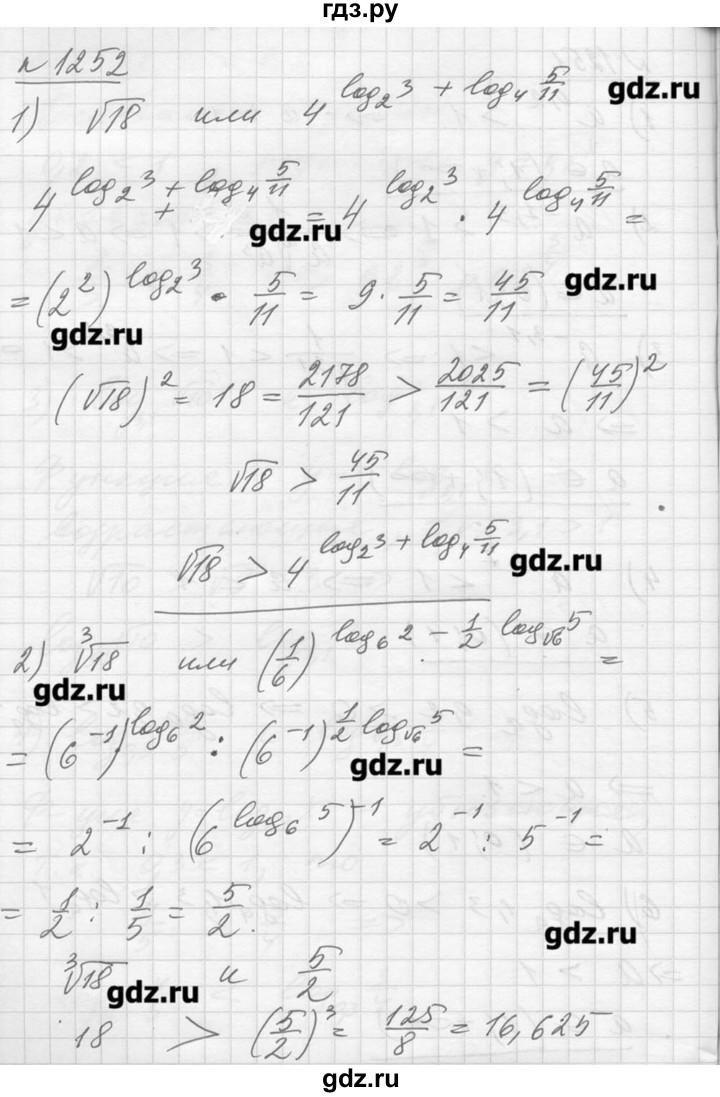 гдз.ру
№ 1252
1) √18 или 4^(log₂3 + log₄ 5/11)
gdz.ru
4^(log₂3 + log₄ 5/11) = 4^(log₂3) · 4^(log₄ 5/11) =
+
gdz.ru
= (2²)^(log₂3) · 5/11 = 9 · 5/11 = 45/11
gdz.ru
gdz.ru
(√18)² = 18 = 2178/121 > 2025/121 = (45/11)²
√18 > 45/11
√18 > 4^(log₂3 + log₄ 5/11)
gdz.ru
2) ∛18 или (1/6)^(log₆2 − 1/2 log_√6 5) =
gdz.ru
= (6⁻¹)^(log₆2) : (6⁻¹)^(1/2 log_√6 5) =
gdz.ru
= 2⁻¹ : (6^(log₆5))⁻¹ = 2⁻¹ : 5⁻¹ =
= 1/2 : 1/5 = 5/2.
gdz.ru
∛18 и 5/2
gdz.ru
18 > (5/2)³ = 125/8 = 16,625
gdz.ru